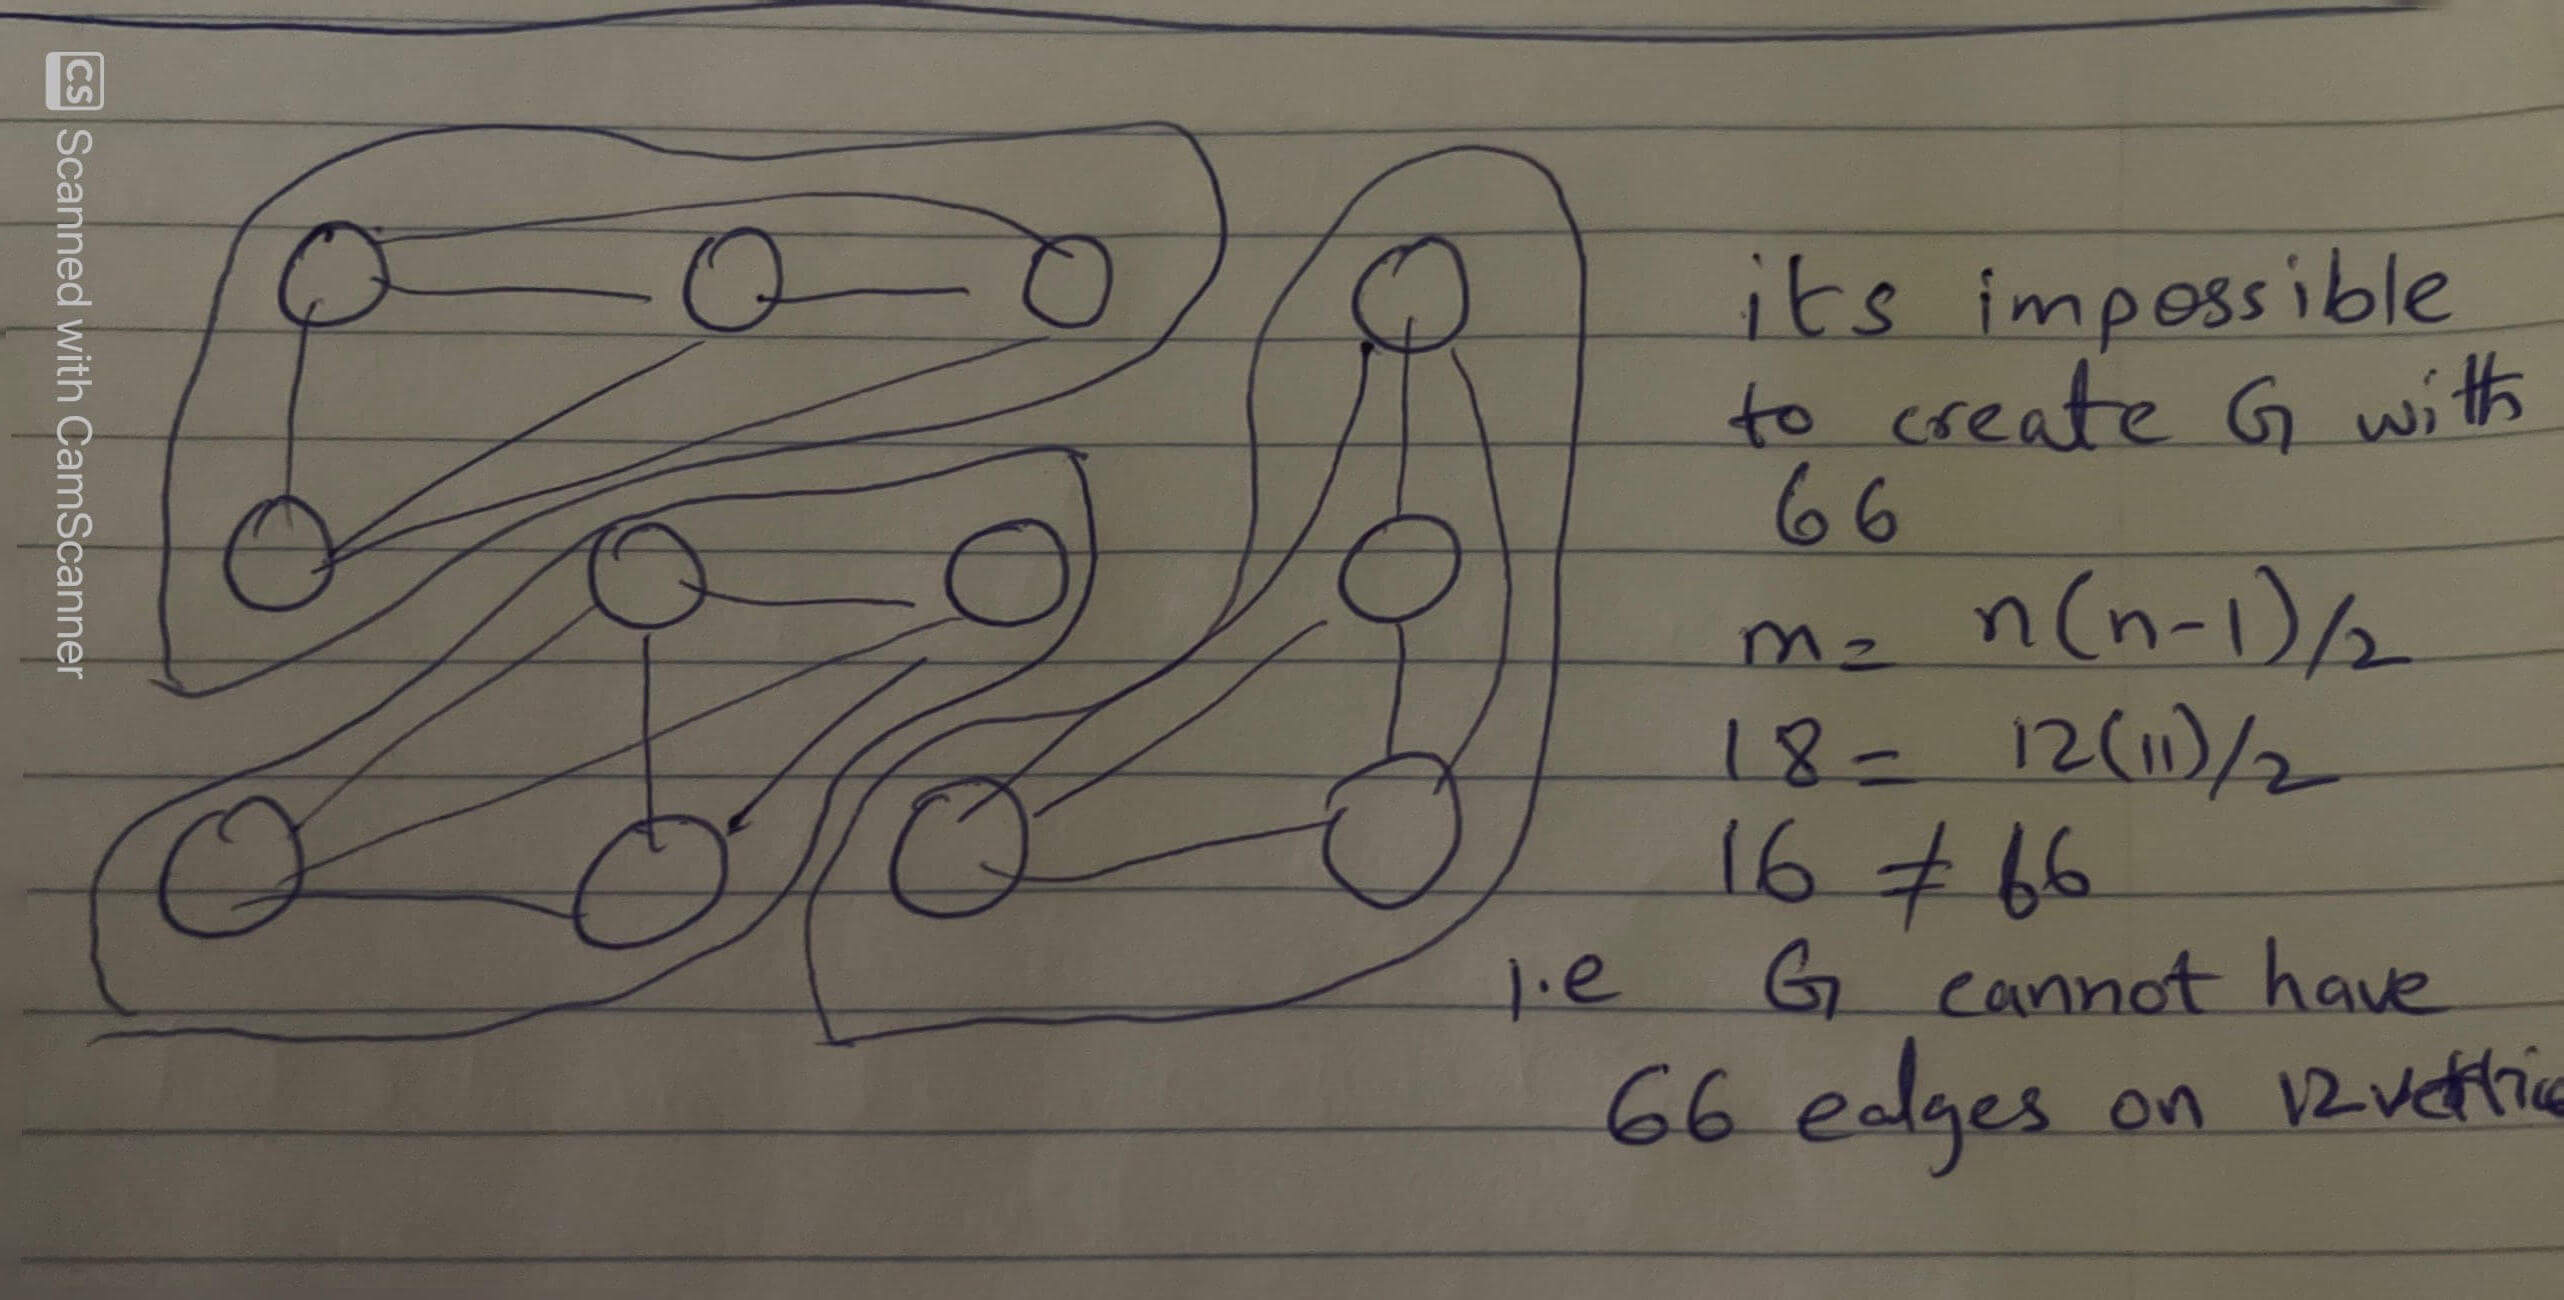 CS Scanned with CamScanner
its impossible
to create G with
66
m = n(n-1)/2
18 = 12(11)/2
16 ≠ 66
i.e G cannot have
66 edges on 12